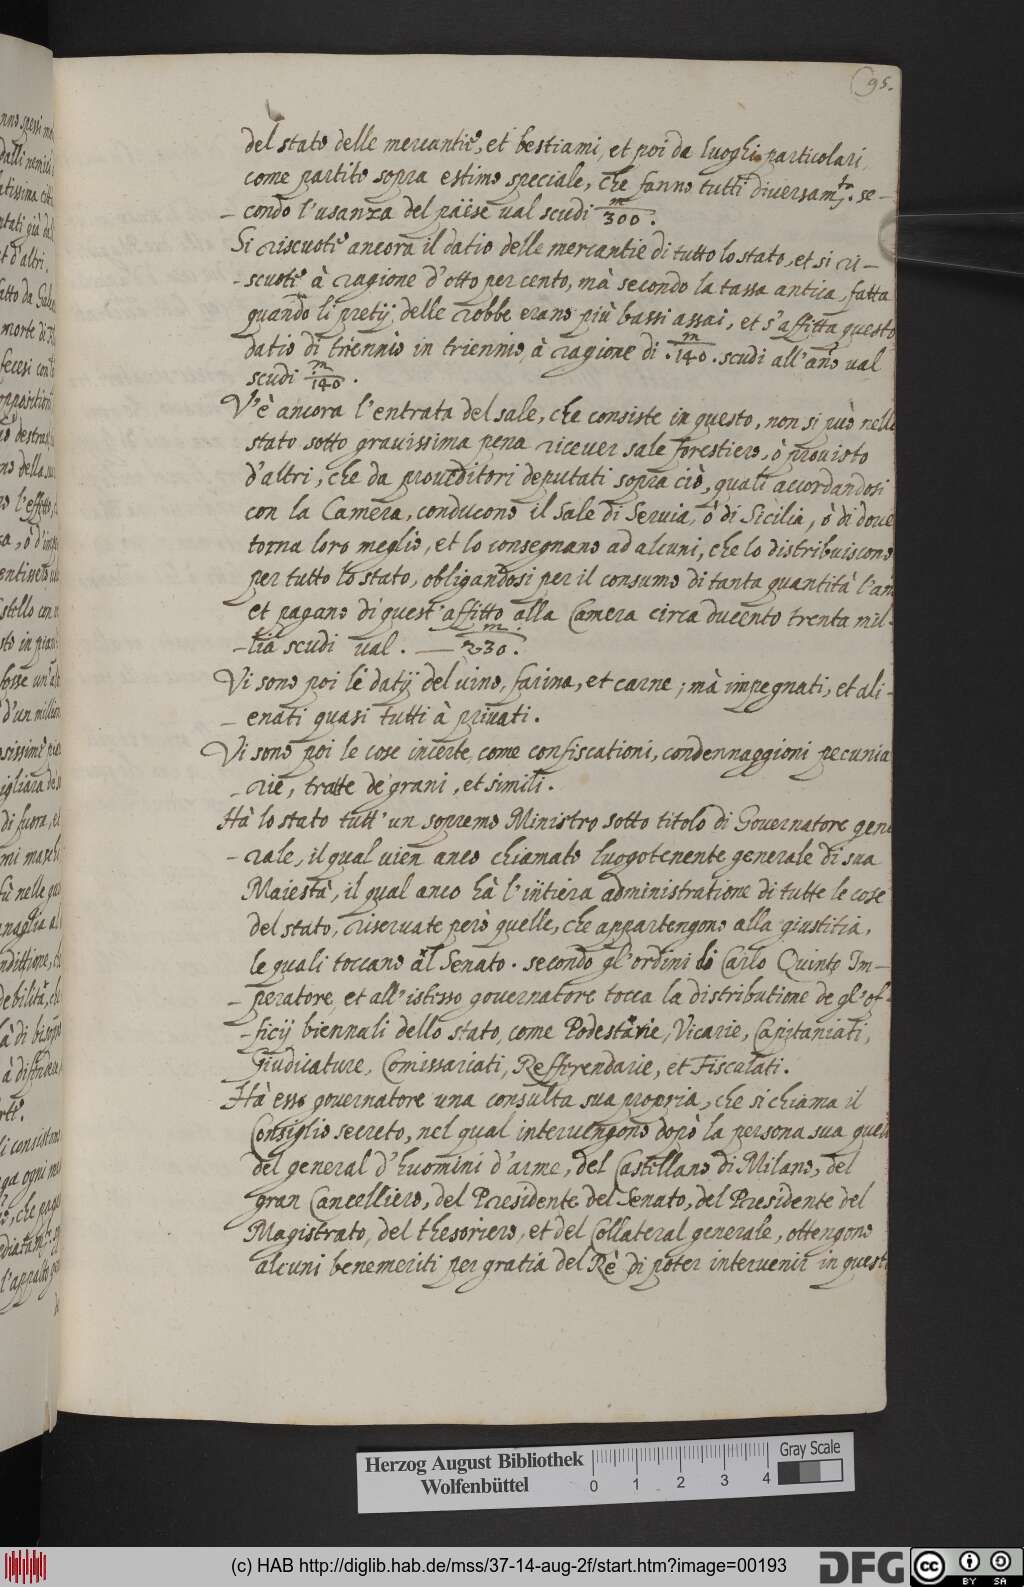 95.
del stato delle mercantie, et bestiami, et poi da luoghi particolari,
come partito sopra estimo speciale, che fanno tutti diversam.te se-
-condo l'usanza del paëse val scudi m/300.
Si riscuote ancora il datio delle mercantie di tutto lo stato, et si ri-
-scuote à ragione d'otto per cento, mà secondo la tassa antica, fatta
quando li pretij delle robbe erano più bassi assai, et s'affitta questo
datio di triennio in triennio à ragione di .m/140. scudi all'año val
scudi m/140.
V'è ancora l'entrata del sale, che consiste in questo, non si può nello
stato sotto gravissima pena ricever sale forestiero, ò provisto
d'altri, che da proveditori deputati sopra ciò, quali accordandosi
con la Camera, conducono il Sale di Servia, ò di Sicilia, ò di dove
torna loro meglio, et lo consegnano ad alcuni, che lo distribuiscono
per tutto lo stato, obligandosi per il consumo di tanta quantità l'an
et pagano di quest'affitto alla Camera circa ducento trenta mil-
-lia scudi val. — m/230.
Vi sono poi le datij del vino, farina, et carne; mà impegnati, et ali-
-enati quasi tutti à privati.
Vi sono poi le cose incerte, come confiscationi, condennaggioni pecunia
-rie, tratte de grani, et simili.
Hà lo stato tutt'un supremo Ministro sotto titolo di Governatore gene
-rale, il qual vien anco chiamato luogotenente generale di sua
Maiestà, il qual anco hà l'intiera administratione di tutte le cose
del stato, riservate però quelle, che appartengono alla giustitia,
le quali toccano al Senato. secondo gl'ordini di Carlo Quinto Im-
-peratore et all'istesso governatore tocca la distributione de gl'of-
-ficij biennali dello stato, come Podestarie, Vicarie, Capitaniati,
Giudicature, Comissariati, Refferendarie, et Fiscalati.
Hà esso governatore una consulta sua propria, che si chiama il
Consiglio secreto, nel qual intervengono dopò la persona sua quell
del general d'huomini d'arme, del Castellano di Milano, del
gran Cancelliero, del Presidente del Senato, del Presidente del
Magistrato, del thesoriero, et del Collateral generale, ottengono
alcuni benemeriti per gratia del Rè di poter intervenir in quest
Herzog August Bibliothek
Wolfenbüttel
0 1 2 3 4
Gray Scale
(c) HAB http://diglib.hab.de/mss/37-14-aug-2f/start.htm?image=00193
DFG
cc BY SA